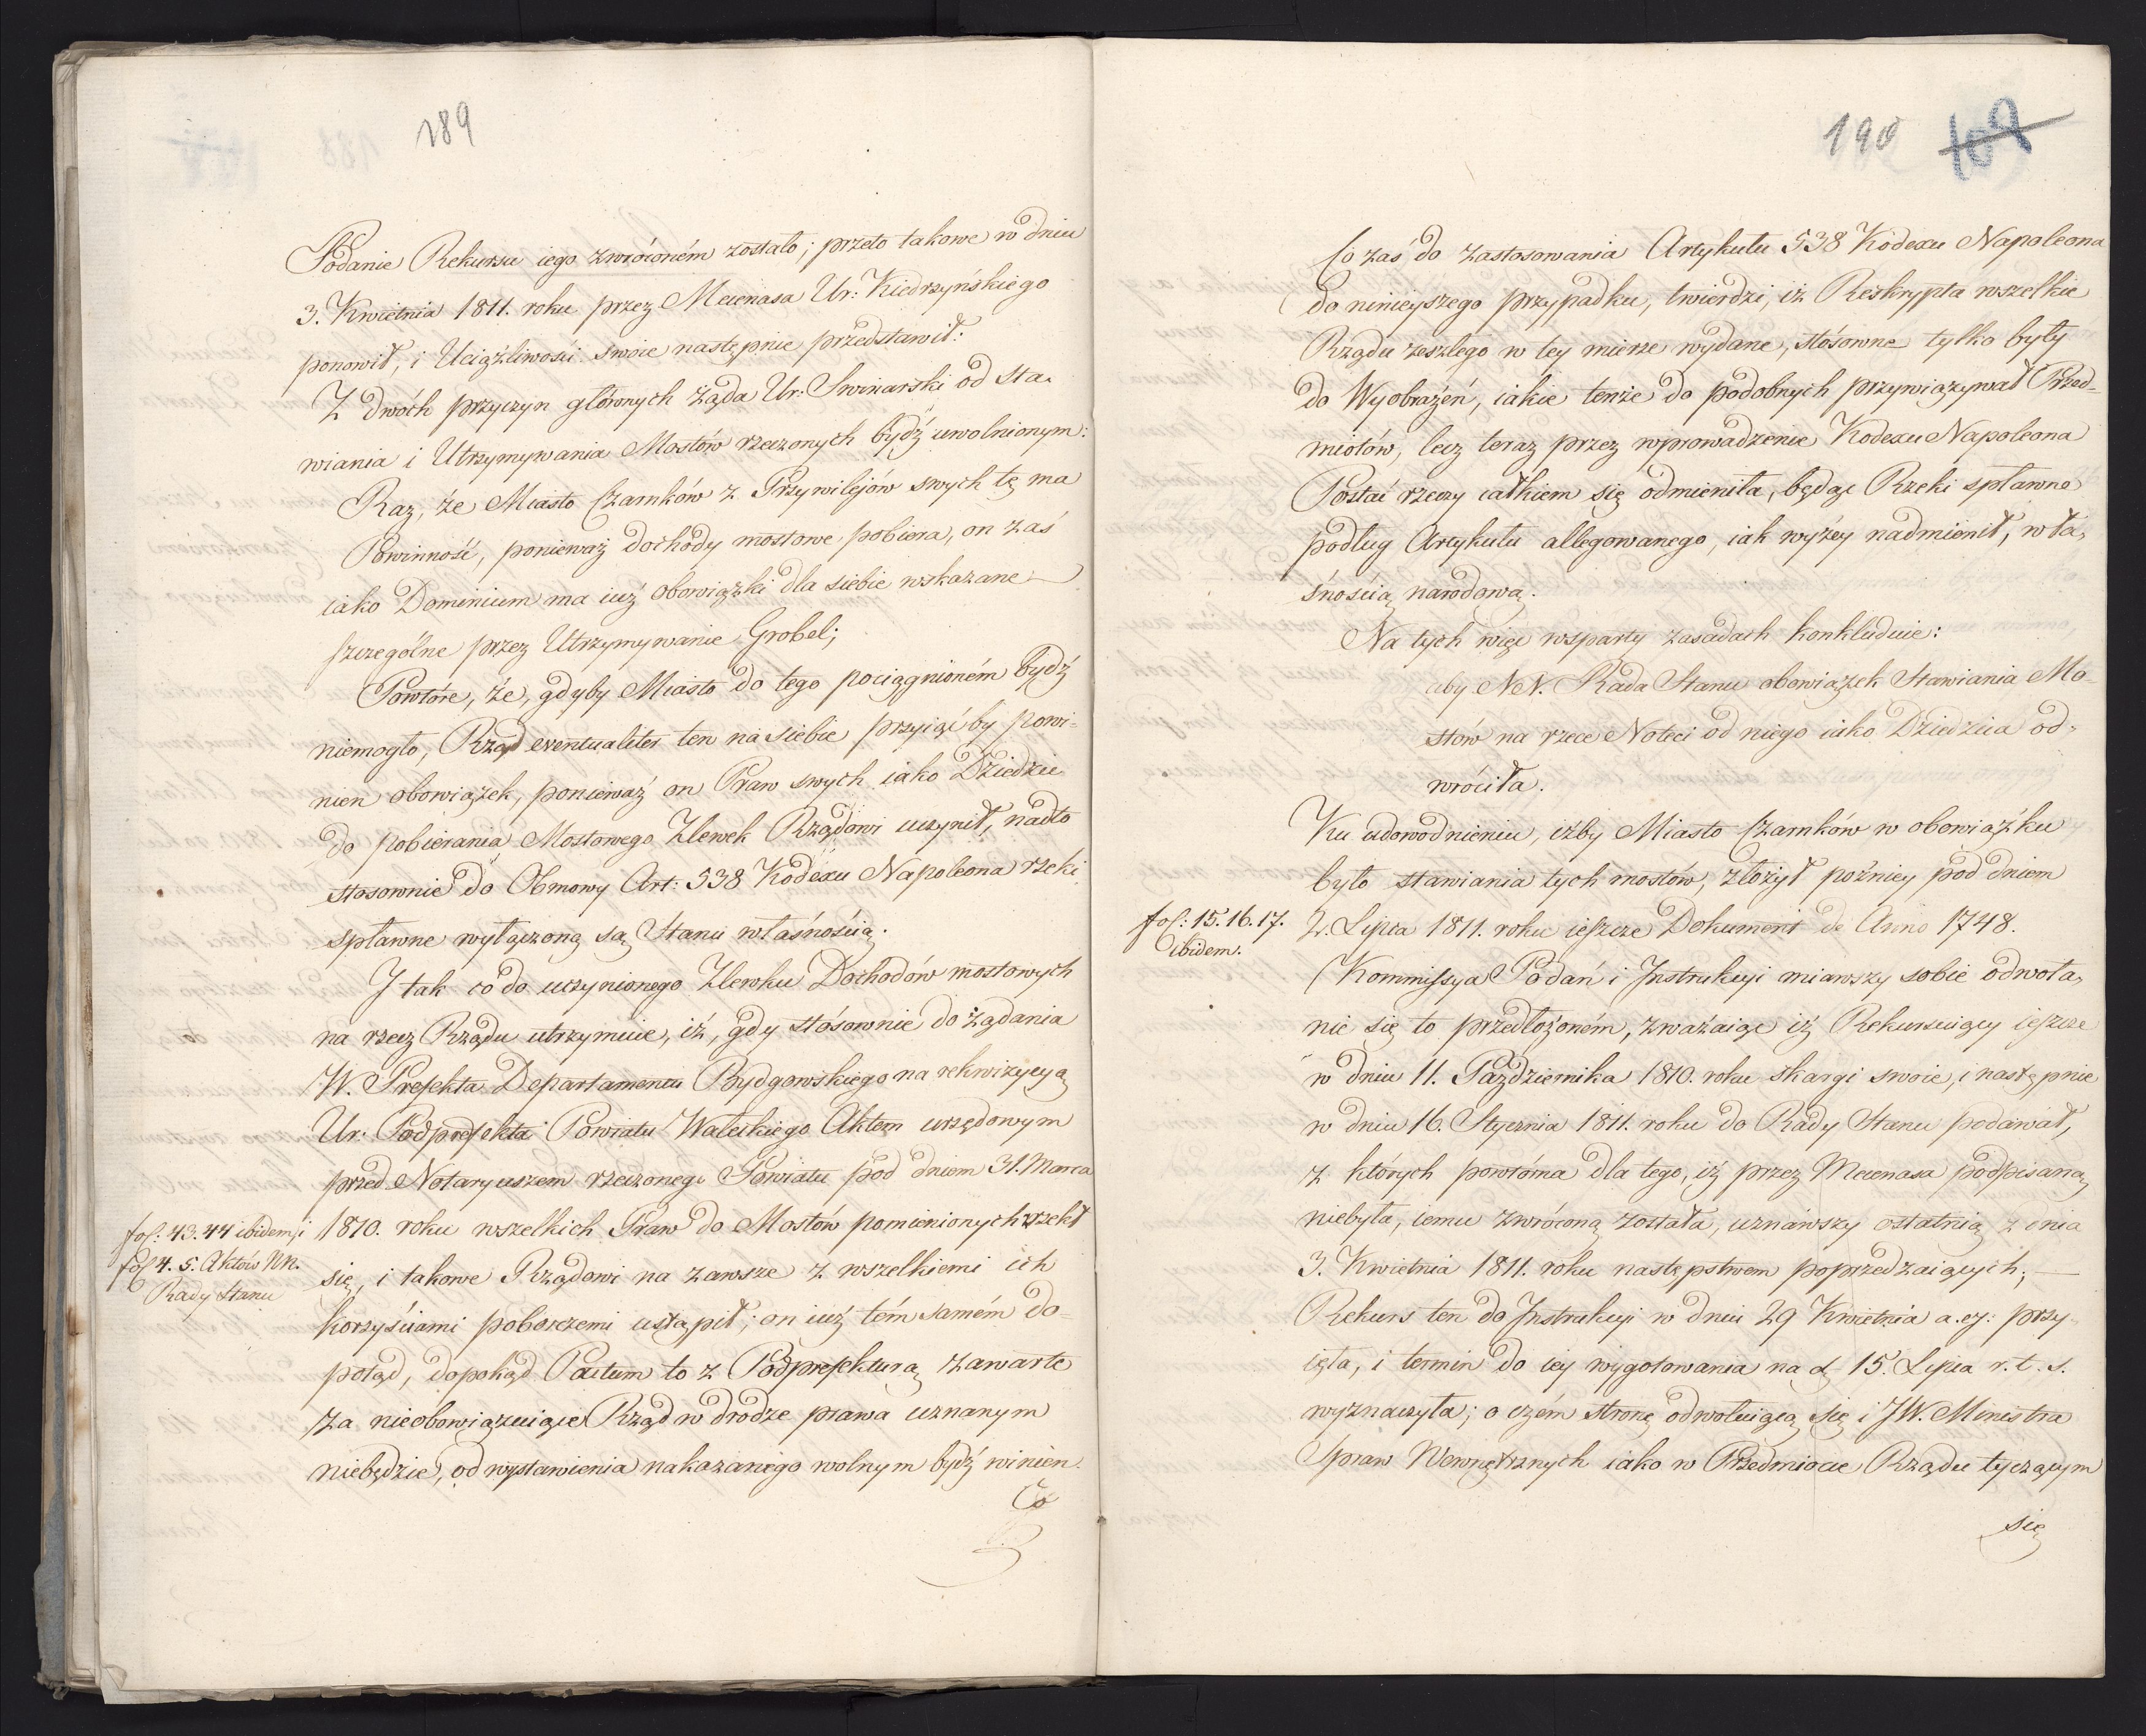 189
Podanie Rekursu iego zwróconém zostało; przeto takowe w dniu
3. Kwietnia 1811. roku przez Mecenasa Ur: Kiedrzyńskiego
ponowił, i Uciążliwości swoie następnie przedstawił:
Z dwóch przyczyn głównych żąda Ur: Swinarski od sta-
wiania i Utrzymywania Mostów rzeczonych bydź uwolnionym:
Raz, że Miasto Czarnków z Przywilejów swych tę ma
Powinność, ponieważ dochody mostowe pobiera, on zaś
iako Dominium ma iuż obowiązki dla siebie wskazane
szczególne przez Utrzymywanie Grobel;
Powtóre, że, gdyby Miasto do tego pociągnioném bydź
niemogło, Rząd eventualiter ten na siebie przyiąć by powi-
nien obowiązek, ponieważ on Praw swych iako Dziedzic
do pobierania Mostowego Zlewek Rządowi uczynił, nadto
stosownie do Obmowy Art: 538 Kodexu Napoleona rzeki
spławne wyłączoną są Stanu własnością.
I tak co do uczynionego Zlewku Dochodów mostowych
na rzecz Rządu utrzymuie, iż, gdy stósownie do żądania
W. Prefekta Departamentu Bydgowskiego na rekwizycyą
Ur: Podprefekta Powiatu Waleckiego Aktem urzędowym
przed Notaryuszem rzeczonego Powiatu pod dniem 31. Marca
fol: 43. 44 ibidem i
fol 4. 5. Aktów NN.
Rady Stanu
1810. roku wszelkich Praw do Mostów pomienionych zrzekł
się, i takowe Rządowi na zawsze z wszelkiemi ich
korzyściami poborczemi ustąpił; on iuż tém samém do-
potąd, dopokąd Pactum to z Podprefekturą zawarte
za nieobowiązuiące Rząd w drodze prawa uznanym
niebędzie, od wystawienia nakazanego wolnym bydź winien.
Co
190 109
Co zaś do zastosowania Artykułu 538 Kodexu Napoleona
do ninieyszego przypadku, twierdzi, iż Reskrypta wszelkie
Rządu zeszłego w tey mierze wydane, stósowne tylko były
do Wyobrażeń, iakie tenże do podobnych przywiązywał Przed-
miotów, lecz teraz przez wprowadzenie Kodexu Napoleona
Postać rzeczy całkiem się odmieniła, będąc Rzeki spławne
podług Artykułu allegowanego, iak wyżey nadmienił, wła-
snością narodową.
Na tych więc wsparty zasadach konkluduie:
aby NN. Rada Stanu obowiązek Stawiania Mo-
stów na rzece Noteci od niego iako Dziedzica od-
wróciła.
Ku udowodnieniu, iżby Miasto Czarnków w obowiązku
było stawiania tych mostów, złożył pózniey pod dniem
fol: 15. 16. 17.
ibidem.
2. Lipca 1811. roku ieszcze Dokument de Anno 1748.
Kommissya Podań i Instrukcyi miawszy sobie odwoła-
nie się to przedłożoném, zważaiąc iż Rekursuiący ieszcze
w dniu 11. Października 1810. roku skargi swoie, i następnie
w dniu 16. Stycznia 1811. roku do Rady Stanu podawał,
z których powtórna dla tego, iż przez Mecenasa podpisaną
niebyła, iemu zwróconą została, uznawszy ostatnią z dnia
3. Kwietnia 1811. roku następstwem poprzedzaiących;
Rekurs ten do Instrukcyi w dniu 29 Kwietnia a. ej: przy-
ięła, i termin do iey wygotowania na d. 15. Lipca r. t. s.
wyznaczyła; o czém stronę odwołuiącą się i JW. Ministra
Spraw Wewnętrznych iako w Przedmiocie Rządu tyczącym
się